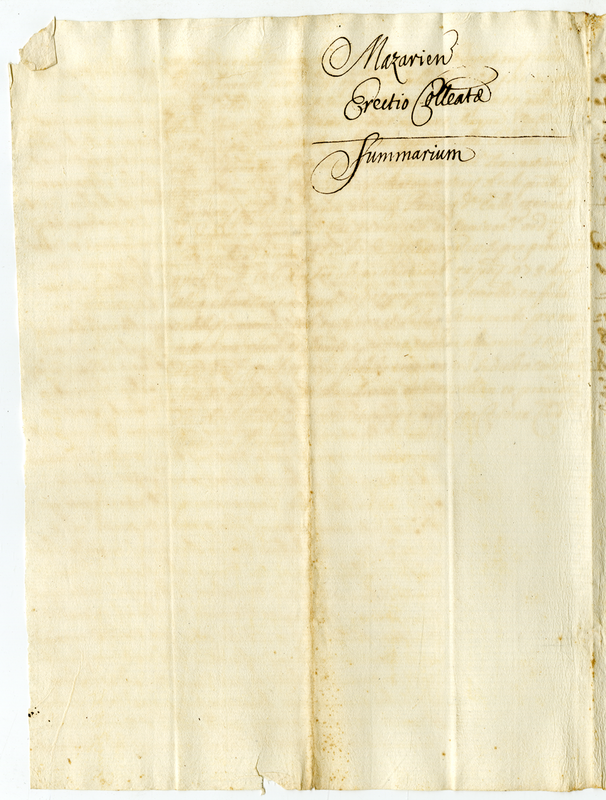 Mazarien
Erectio Colleatæ
Summarium